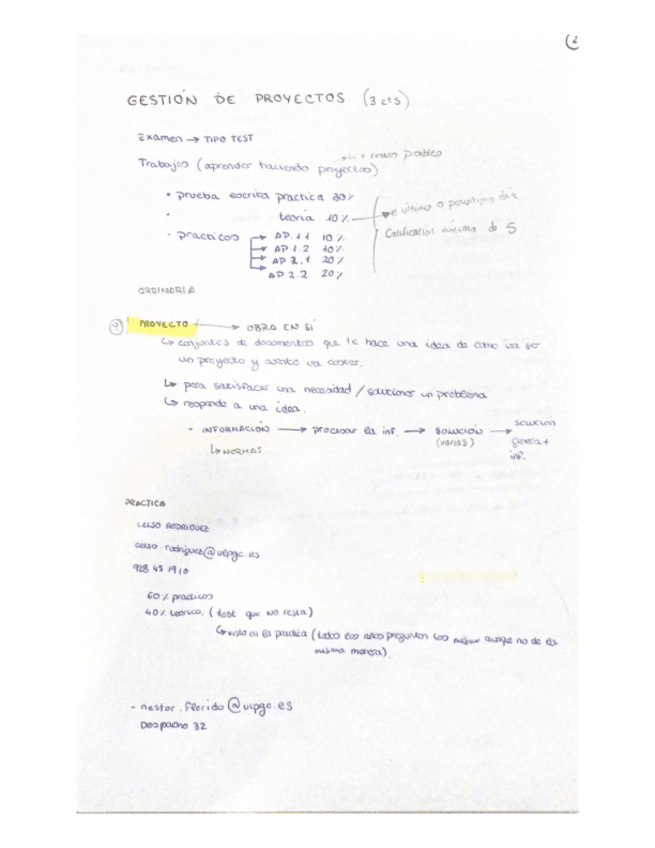 GESTIÓN DE PROYECTOS (3 cts)
Examen → TIPO TEST
Trabajos (aprender haciendo proyectos)
• prueba escrita practica 30%
• teoria 10% → el último o penúltimo día
• practicos AP. 1.1 10% Calificación mínima de 5
AP 1.2 10%
AP 2.1 20%
AP 2.2 20%
ORDINARIA
PROYECTO → OBRA EN SÍ
↳ conjuntos de documentos que te hace una idea de como va ser
un proyecto y cuanto va costar.
↳ para satisfacer una necesidad / solucionar un problema
↳ responde a una idea.
- INFORMACIÓN → procesar la inf. → SOLUCIÓN (varias) → solución genera + inf.
↳ NORMAS
PRACTICA
CELSO RODRIGUEZ
celso.rodriguez@ulpgc.es
928 45 1910
60% practicos
40% teorico. (test que NO resta)
↳ visto en la practica (todos los años preguntan los mismo aunque no de la
misma manera).
- nestor.florido@ulpgc.es
Despacho 32